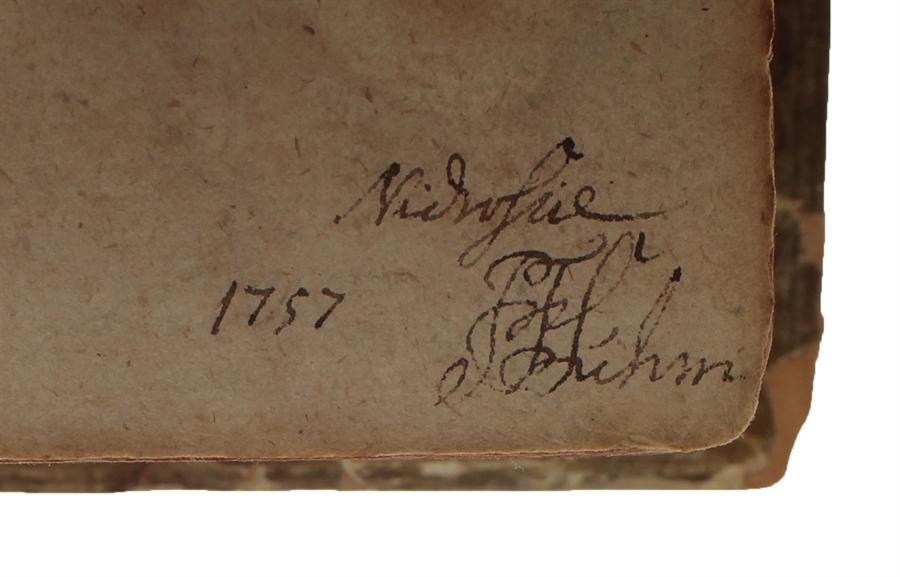 Nidrosiæ
1757 PFSuhm